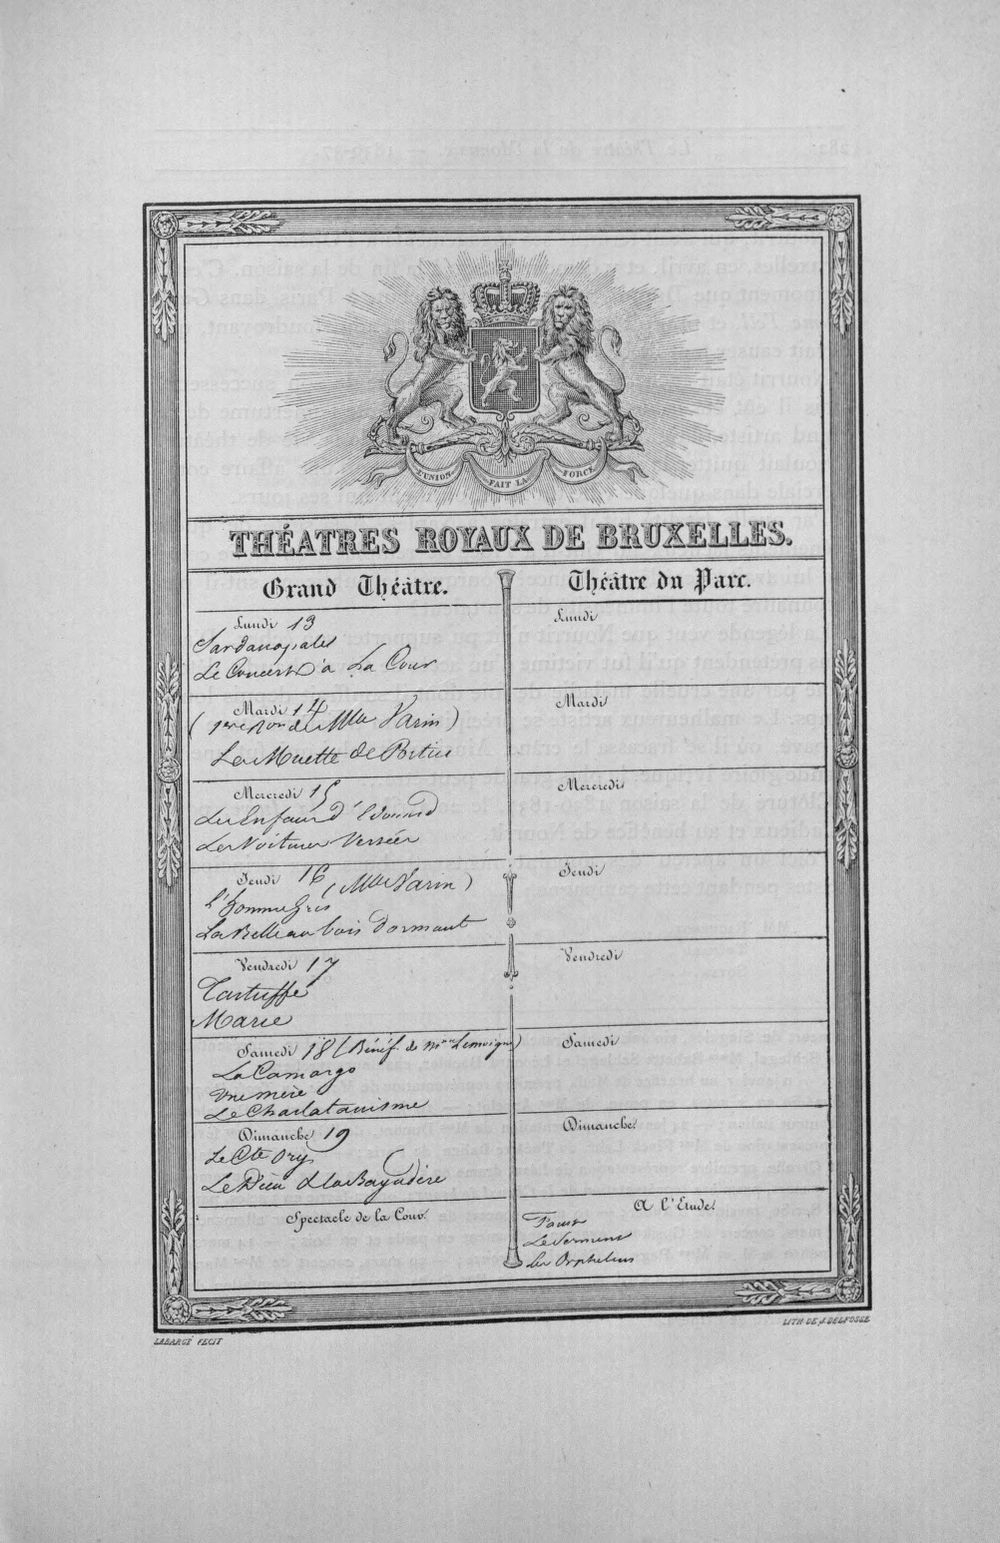 L'UNION FAIT LA FORCE
THÉATRES ROYAUX DE BRUXELLES.
Grand Théâtre.
Lundi 13
Sardanapales
Le Concert à La Cour
Mardi 14
(1ere Ron de Mlle Varin)
La Muette de Portici
Mercredi 15
Les Enfans d'Edouard
Les Voitures Versées
Jeudi 16 (Mlle Varin)
L'homme Gris
La Belle au bois Dormant
Vendredi 17
Tartuffe
Marie
Samedi 18 (Bénéf. de Mme Lemoigne)
La Camargo
Une mère
Le Charlatanisme
Dimanche 19
Le Cte Ory
Le Dieu & la Bayadère
Spectacle de la Cour.
Théâtre du Parc.
Lundi
Mardi
Mercredi
Jeudi
Vendredi
Samedi
Dimanche
A l'Etude.
Faust
Le Serment
Les Orphelins
LABARGÉ FECIT
LITH. DE J. DELFOSSE